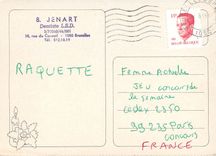 B. JENART
Dentiste L.S.D.
1080 Bruxelles
RAQUETTE
Femme Actuelle
JEU concours de
la semaine
Cedex 2350
99 235 Paris
concours
FRANCE